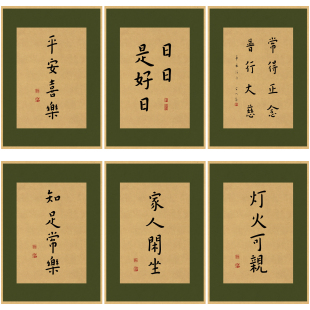 平安喜樂
日日
是好日
常得正念
普行大慈
知足常樂
家人閒坐
灯火可親